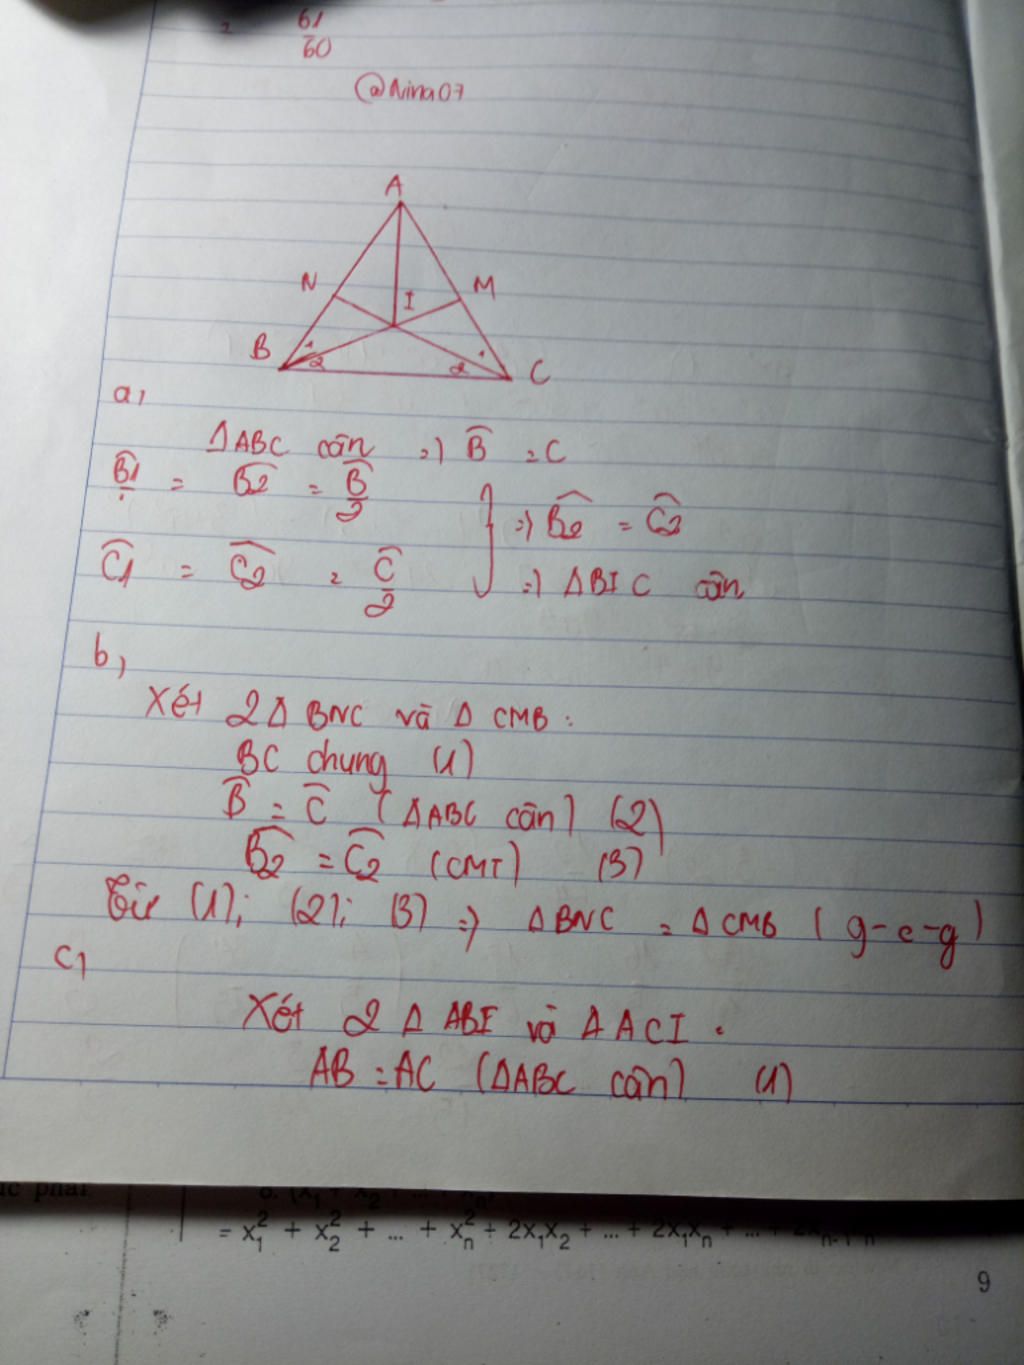 61
60
@Nina07
A
N
I
M
B
1
2
2
1
C
a,
ΔABC cân => B̂ = C
B̂1 = B̂2 = B̂/2
=> B̂2 = Ĉ2
Ĉ1 = Ĉ2 = Ĉ/2
=> ΔBIC cân
b,
Xét 2Δ BNC và Δ CMB :
BC chung (1)
B̂ = Ĉ (ΔABC cân) (2)
B̂2 = Ĉ2 (CMT) (3)
Từ (1); (2); (3) => ΔBNC = ΔCMB (g-c-g)
c,
Xét 2 Δ ABI và ΔACI .
AB = AC (ΔABC cân) (1)
= x₁² + x₂² + ... + xₙ² + 2x₁x₂ + ... + 2x₁xₙ + ... + 2xₙ₋₁xₙ
9